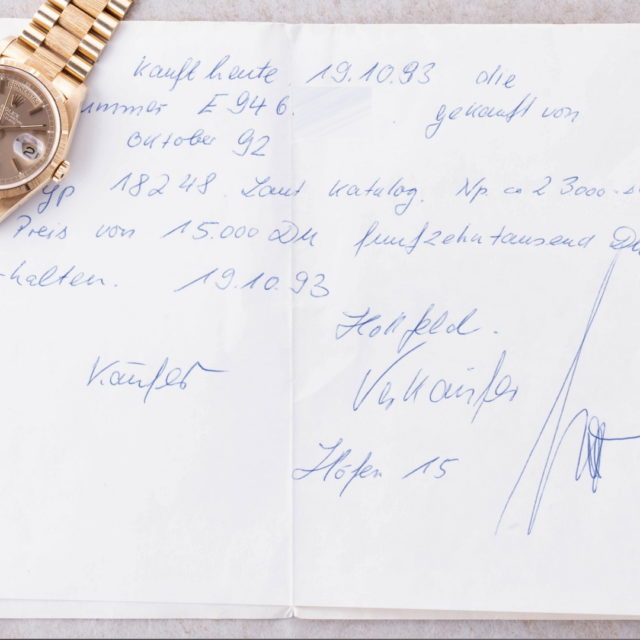 kauft heute 19.10.93 die
ummer E 946. gekauft von
Oktober 92
yp 18248. Laut Katalog. Np ca 23000.-
Preis von 15.000 DM fünfzehntausend DM
halten. 19.10.93
Hollfeld.
Käufer Verkäufer
Höfen 15